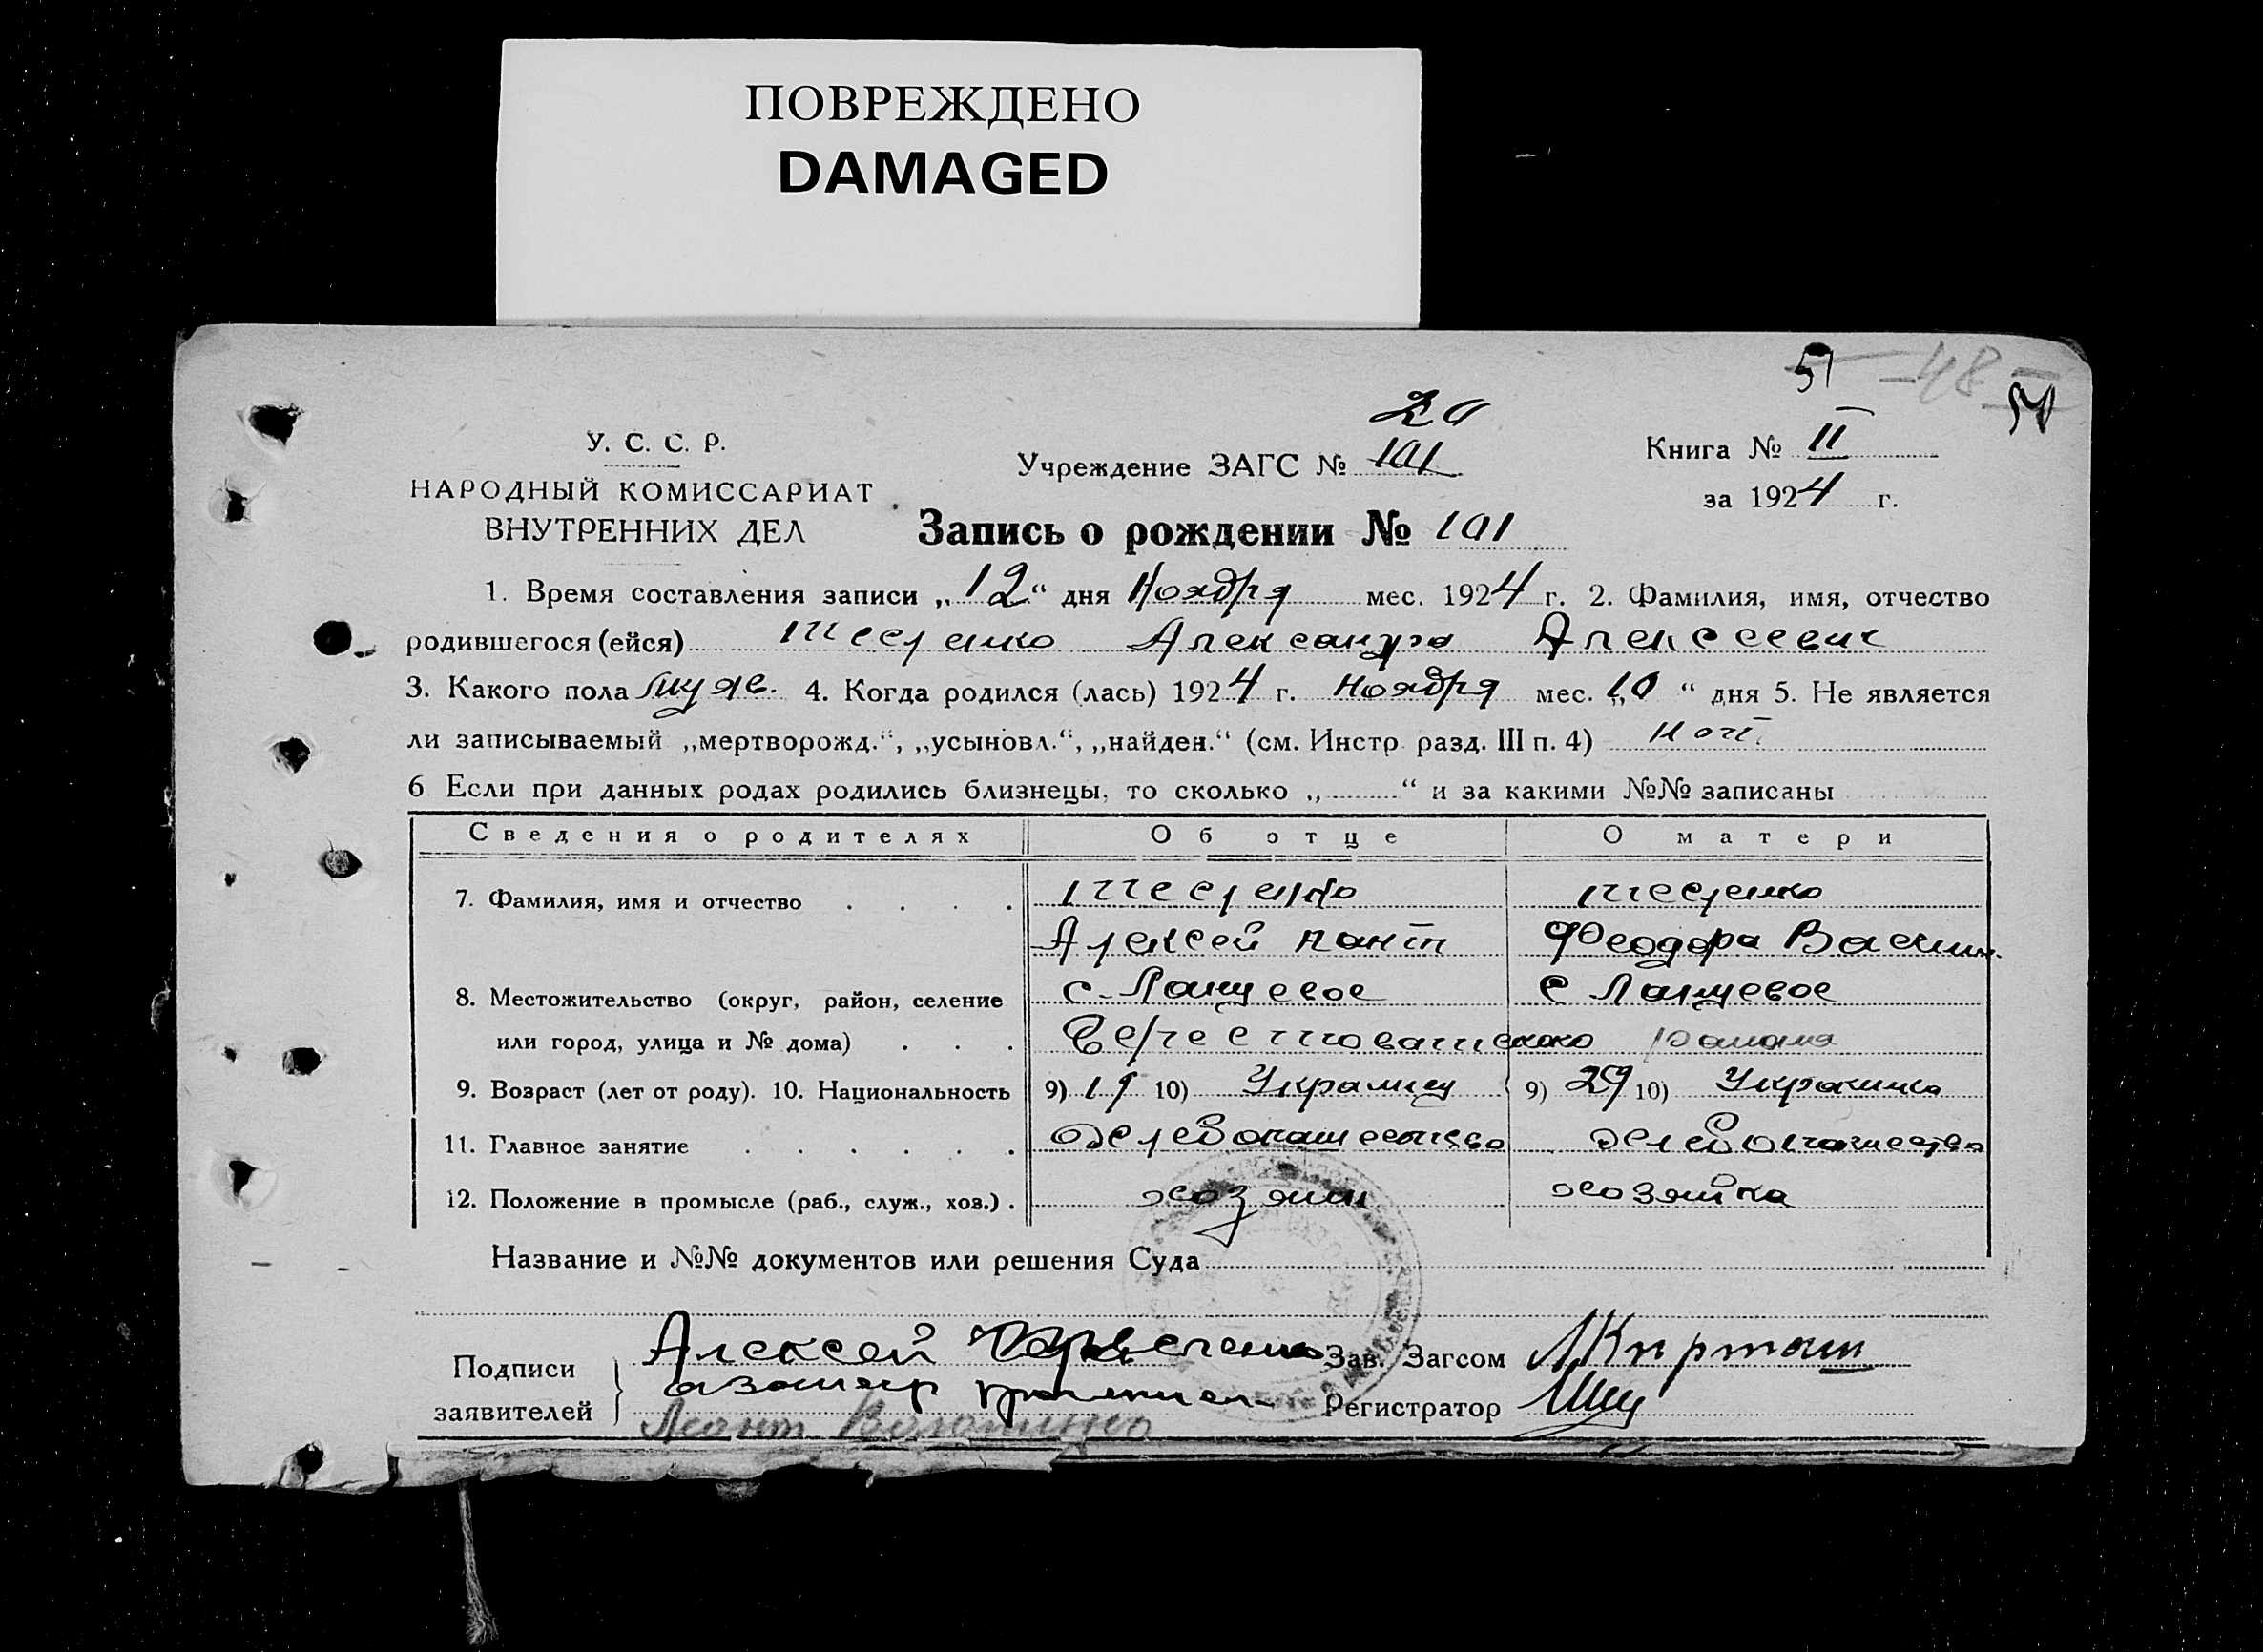 ПОВРЕЖДЕНО
DAMAGED
51 48
У. С. С. Р.
НАРОДНЫЙ КОМИССАРИАТ
ВНУТРЕННИХ ДЕЛ
Учреждение ЗАГС № 101
Книга № II
за 1924 г.
Запись о рождении № 101
1. Время составления записи „12“ дня Ноября мес. 1924 г. 2. Фамилия, имя, отчество
родившегося (ейся) Александр Алексеевич
3. Какого пола муж. 4. Когда родился (лась) 1924 г. Ноября мес. „10“ дня 5. Не является
ли записываемый „мертворожд.“, „усыновл.“, „найден.“ (см. Инстр. разд. III п. 4)
6 Если при данных родах родились близнецы, то сколько „ “ и за какими №№ записаны
Сведения о родителях Об отце О матери
7. Фамилия, имя и отчество
Алексей Феодора
8. Местожительство (округ, район, селение с. Ланцевое с Ланцевое
или город, улица и № дома) района
9. Возраст (лет от роду). 10. Национальность 9) 10) Украинец 9) 29 10) Украинка
11. Главное занятие хлебопашество хлебопашество
12. Положение в промысле (раб., служ., хоз.) хозяин хозяйка
Название и №№ документов или решения Суда
Подписи
заявителей
Алексей
Зав. Загсом
Регистратор